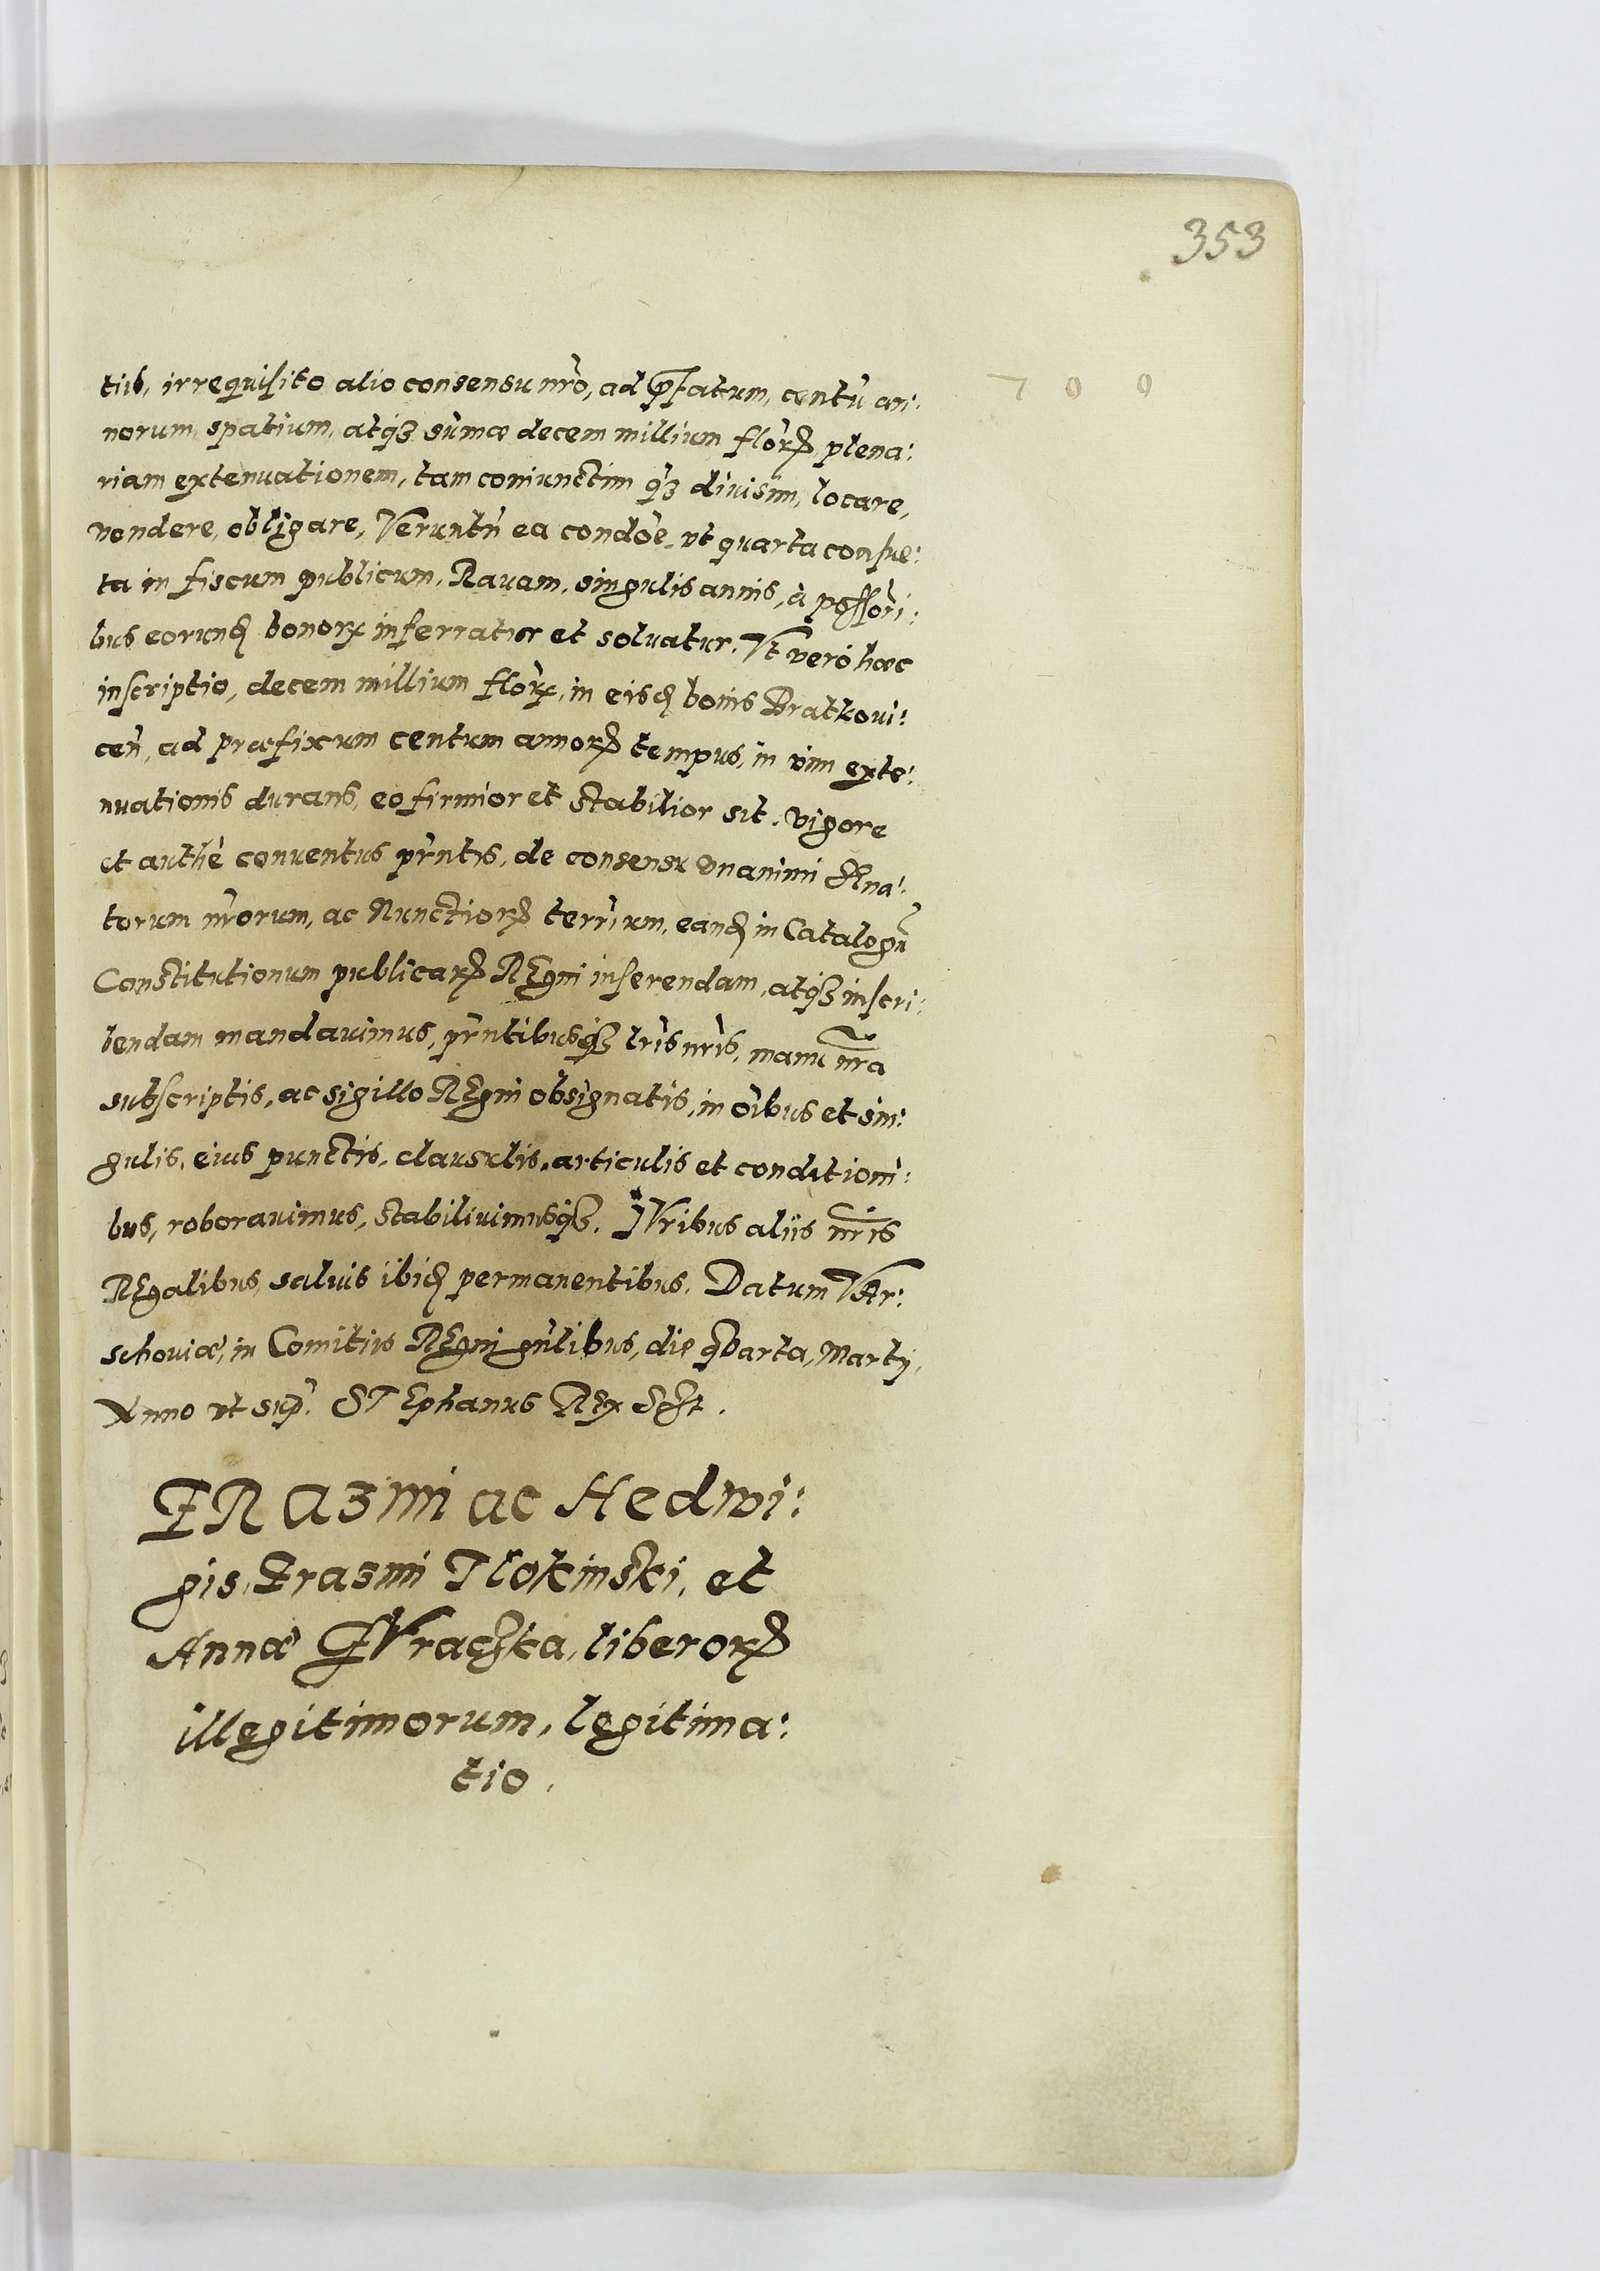 353
700
tiis, irrequisito alio consensu nr̃o, ad p̱fatum, centũ an:
norum, spatium, atqꝫ sum̃æ decem millium flõrꝝ plena:
riam extenuationem, tam coniunctim qꝫ diuisim, locare,
vendere, obligare, Veruntñ ea condõe, vt quarta consue:
ta in fiscum publicum, Rauam, singulis annis, à possõri:
bus eorund bonorꝝ inferratur et soluatur. Vt verò hæc
inscriptio, decem millium flõrꝝ, in eisd bonis Bratkoui:
ceñ, ad præfixum centum annorꝝ tempus, in vim exte:
nuationis durans, eo firmior et stabilior sit. Vigore
et authẽ conuentus pr̃ntis, de consensu vnanimi Sena:
torum nr̃orum, ac Nunctiorꝝ terr̃ium, eand in Catalogũ
Constitutionum publicarꝝ Regni inserendam, atqꝫ inscri:
bendam mandauimus, pr̃ntibusqꝫ lr̃is nr̃is, manu nr̃a
subscriptis, ac sigillo Regni obsignatis, in õibus et sin:
gulis, eius punctis, clausulis, articulis et condition̄i:
bus, roborauimus, stabiliuimusqꝫ. IVribus aliis nr̃is
Regalibus, saluis ibid permanentibus. Datum VAr:
schouiæ, in Comitiis Regni gñlibus, die qVarta, Martÿ,
Anno vt sup̃. STEphanus Rex SSt.
ERazmi ac Hedwi:
gis, Erazmi Tlokinski, et
Annæ GVraczka, liberorꝝ
illegitimorum, legitima:
tio.